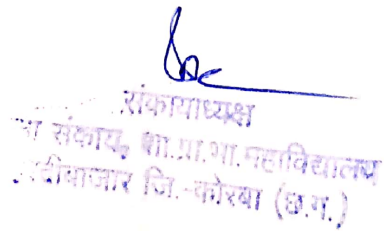 संकायाध्यक्ष
संकाय, शा.ग्रा.भा.महाविद्यालय
जि.-कोरबा (छ.ग.)